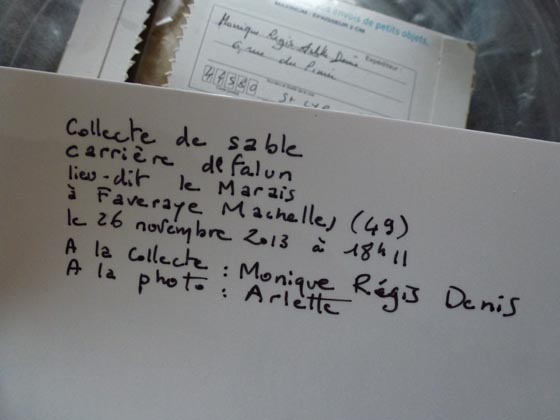 envois de petits objets.
Monique Régis Sable Denis
Expéditeur :
6 rue du
44580
St
Collecte de sable
carrière de falun
lieu-dit le Marais
à Faveraye Machelles (49)
le 26 novembre 2013 à 18h11
A la collecte : Monique Régis Denis
A la photo : Arlette